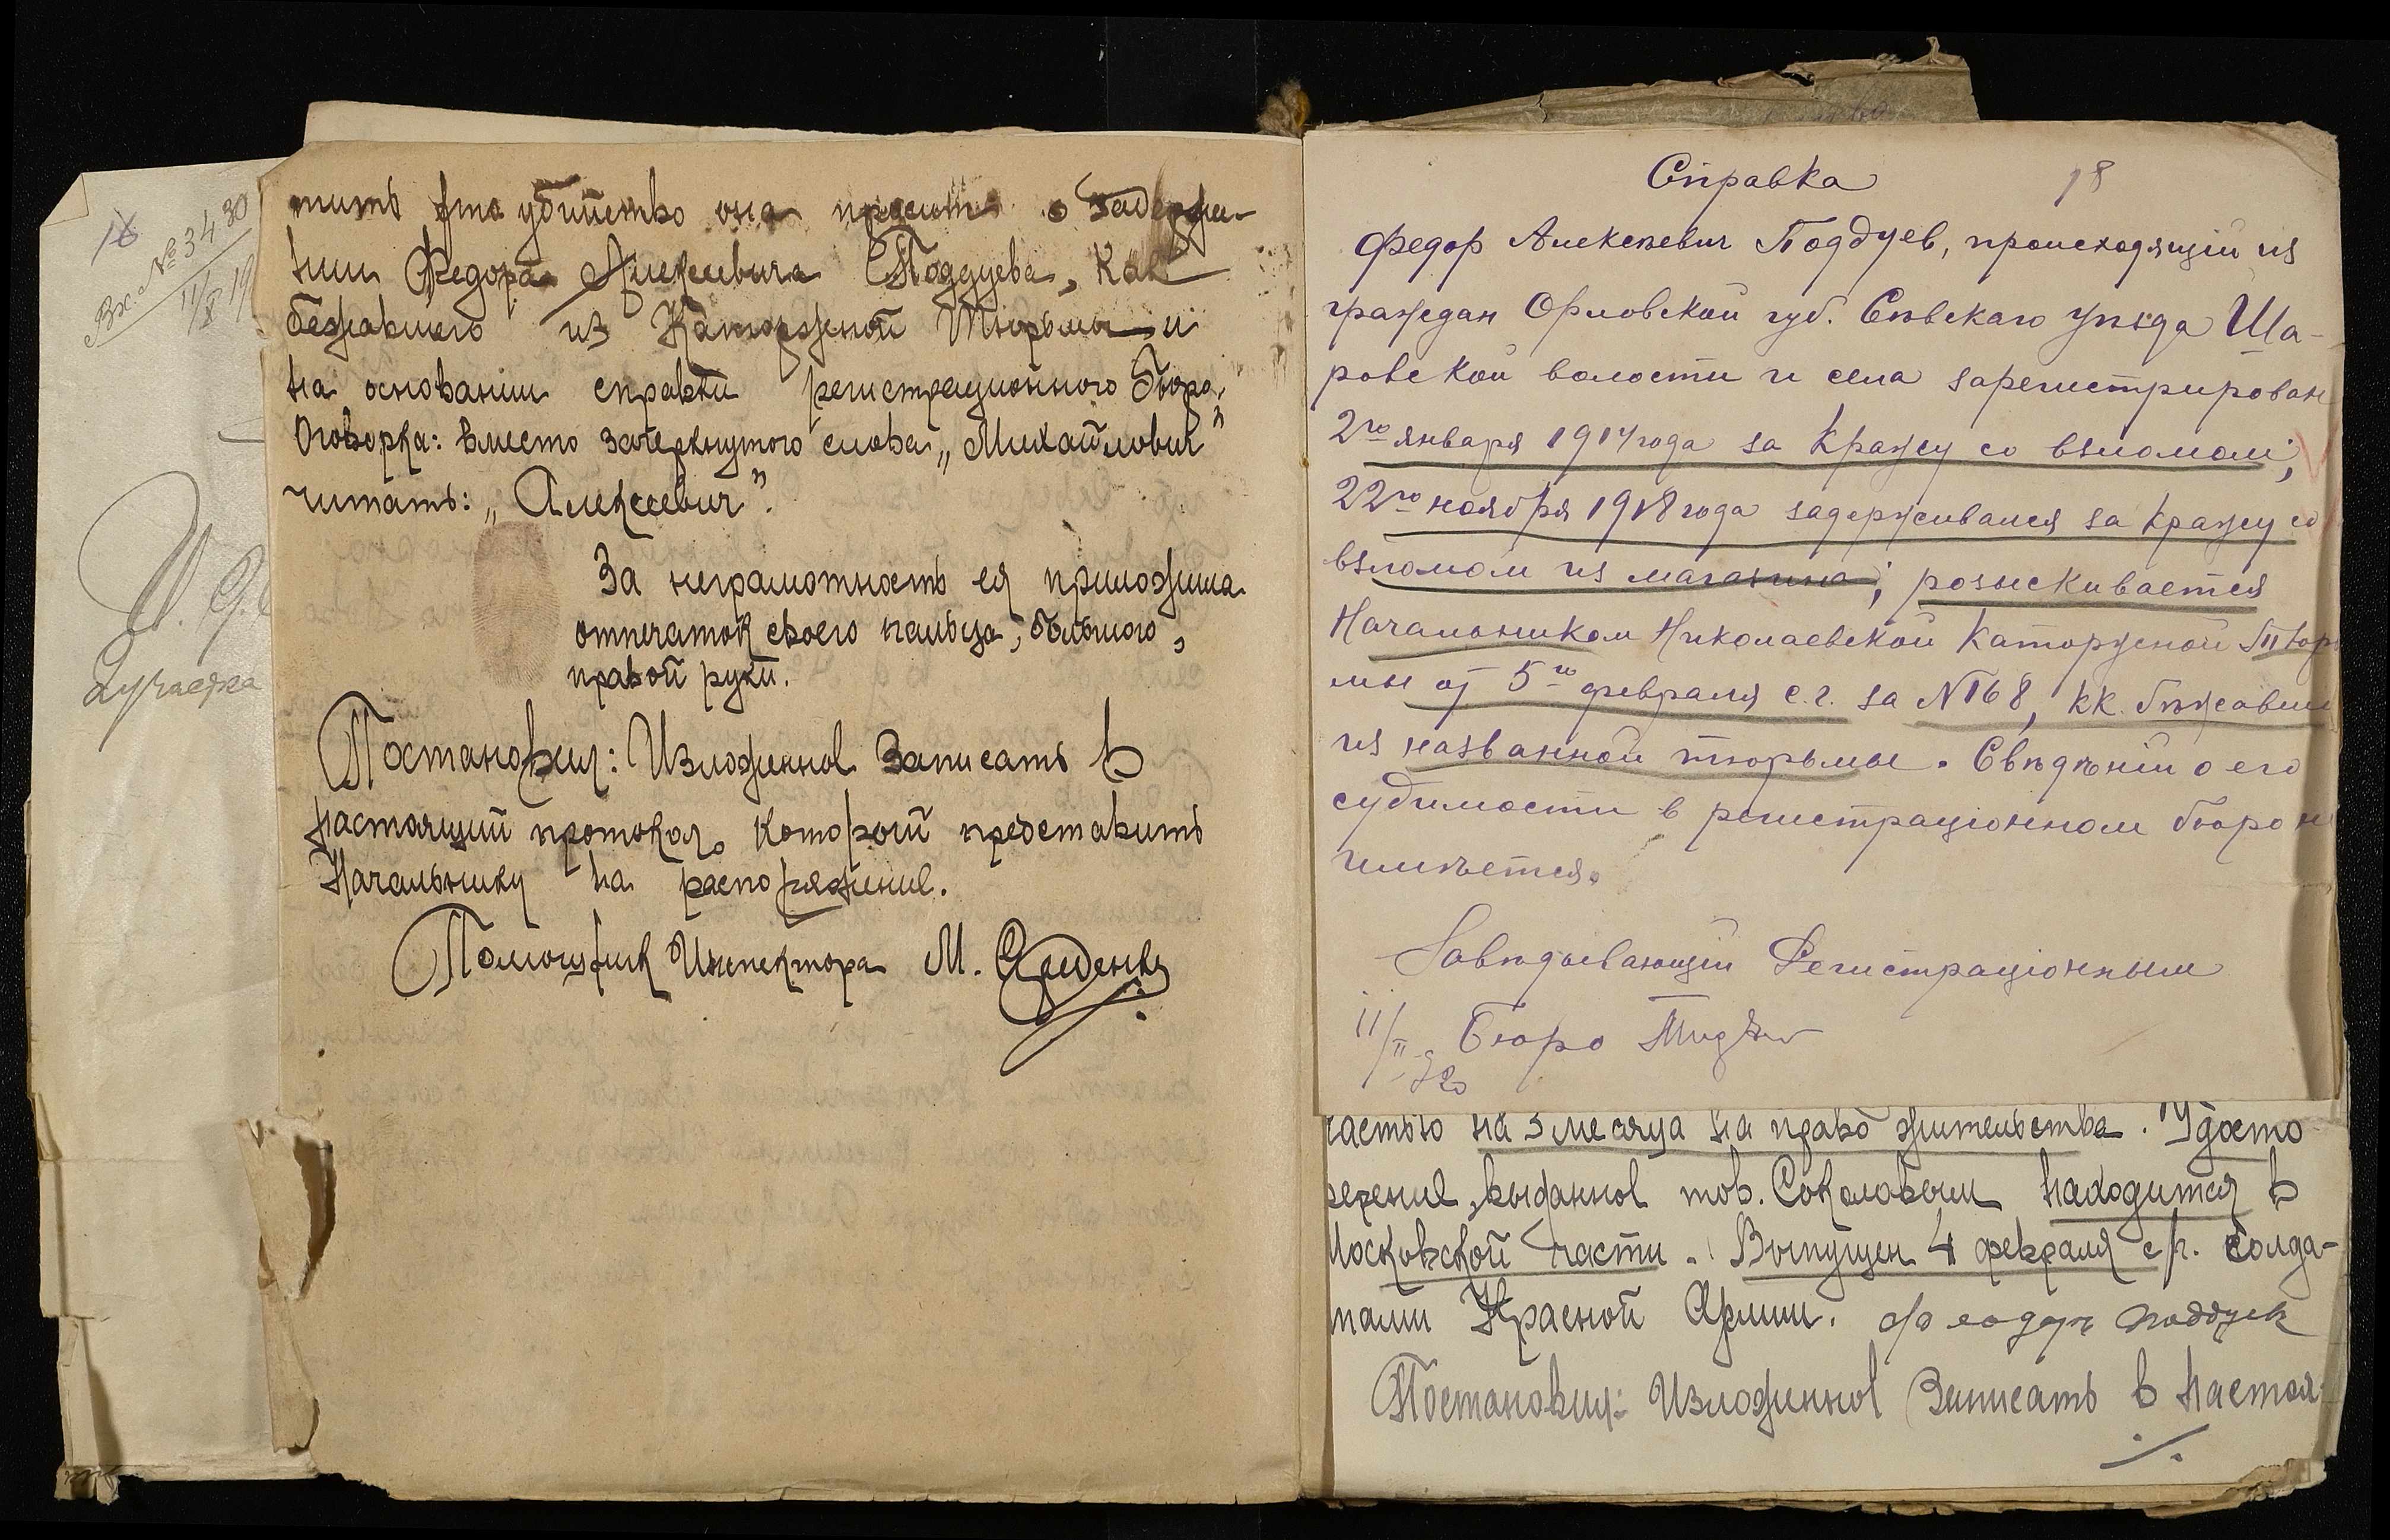 16
Вх. № 3430
11/II 19
2 участка
тить это убийство она просит о задержа-
нии Федора Алексеевича Поддуева, как
бежавшего из Каторжной Тюрьмы и
на основании справки регистрационного Бюро.
Оговорка: вместо зачеркнутого слова „Михайлович"
читать: „Алексеевич".
За неграмотность ея приложила
отпечаток своего пальца, большого,
правой руки.
Постановил: Изложенное Записать в
настоящий протокол, который представить
Начальнику на распоряжение.
Помощник Инспектора М.
Справка
18
Федор Алексеевич Поддуев, происходящiй из
граждан Орловской губ. Сѣвскаго уѣзда Ша-
ровской волости и села зарегистрирован
2го января 1914 года за кражу со взломом;
22го ноября 1918 года задерживался за кражу со
взломом из магазина; розыскивается
Начальником Николаевской Каторжной Тюрь
мы от 5го февраля с.г. за № 168, кк. бѣжавши
из названной тюрьмы. Свѣдѣнiй о его
судимости в регистрацiонном бюро н
имѣется.
Завѣдывающiй Регистрацiонным
11/II 20 Бюро
частью на 3 месяца на право жительства. Удосто
верение, выданное тов. Соколовым находится в
Московской части. Выпущен 4 февраля с/г. солда-
тами Красной Армии. Феодор Поддуев
Постановил: Изложенное Записать в настоя-
./.